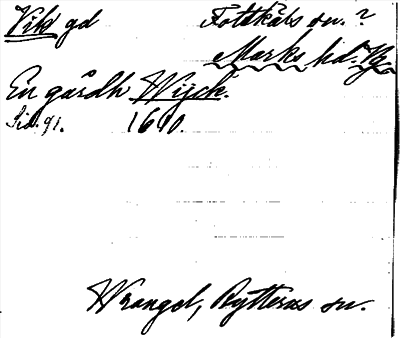 Vik gd Fotskäls sn.?
Marks hd. Vg.
En gårdh Wijck.
Sid. 91. 1690.
Wrangel, Rytteras sn.